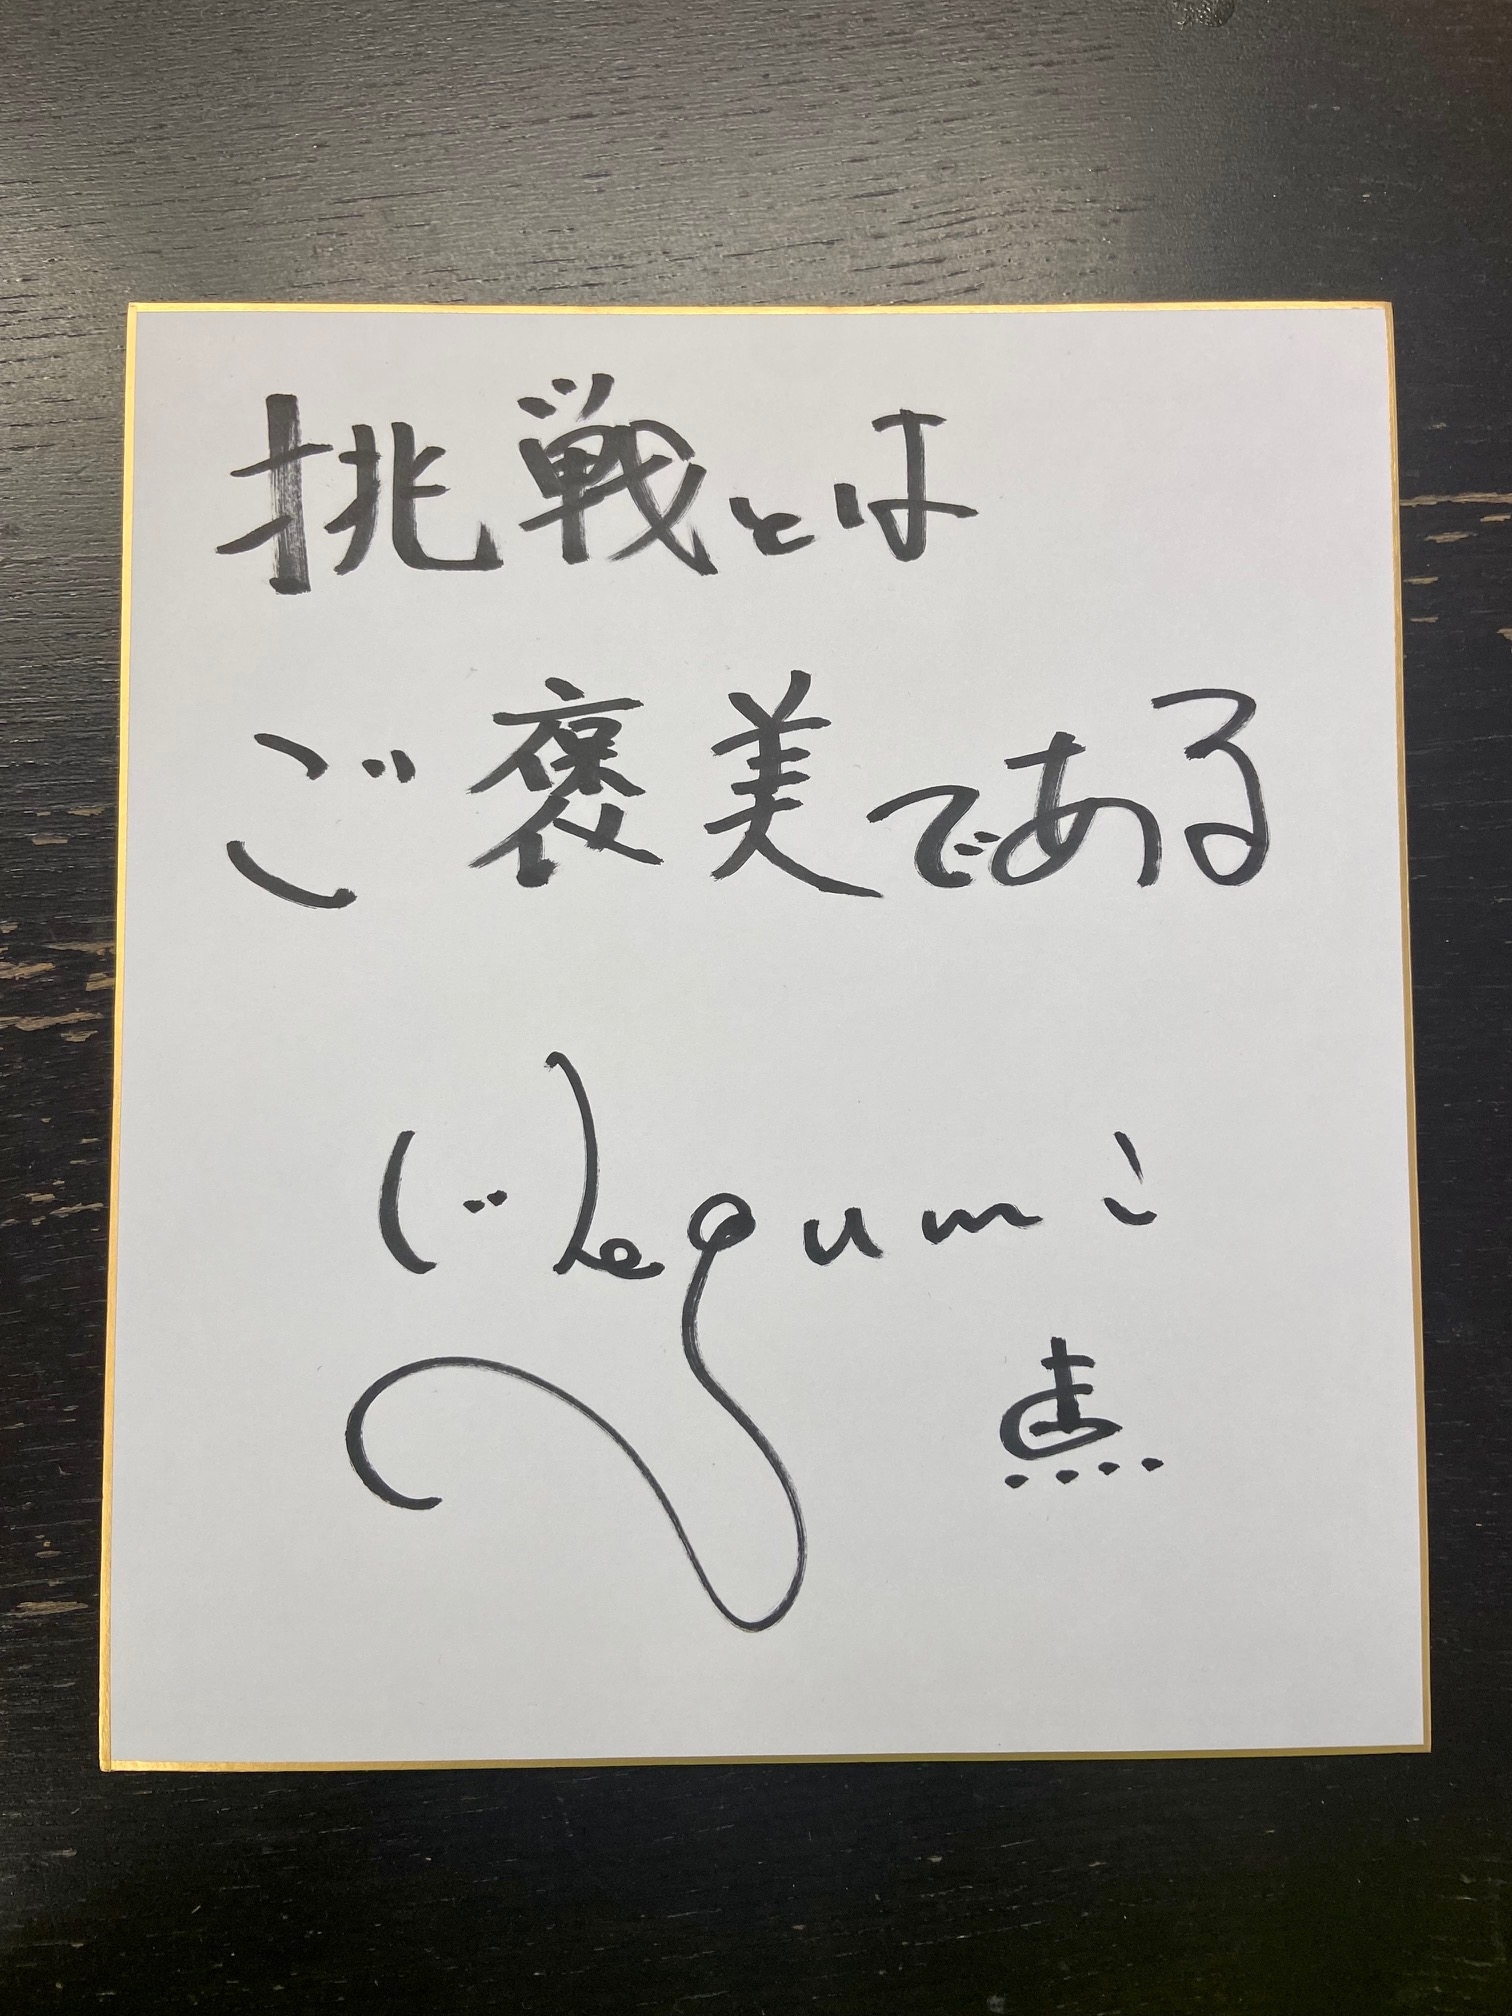 挑戦とは
ご褒美である
Megumi